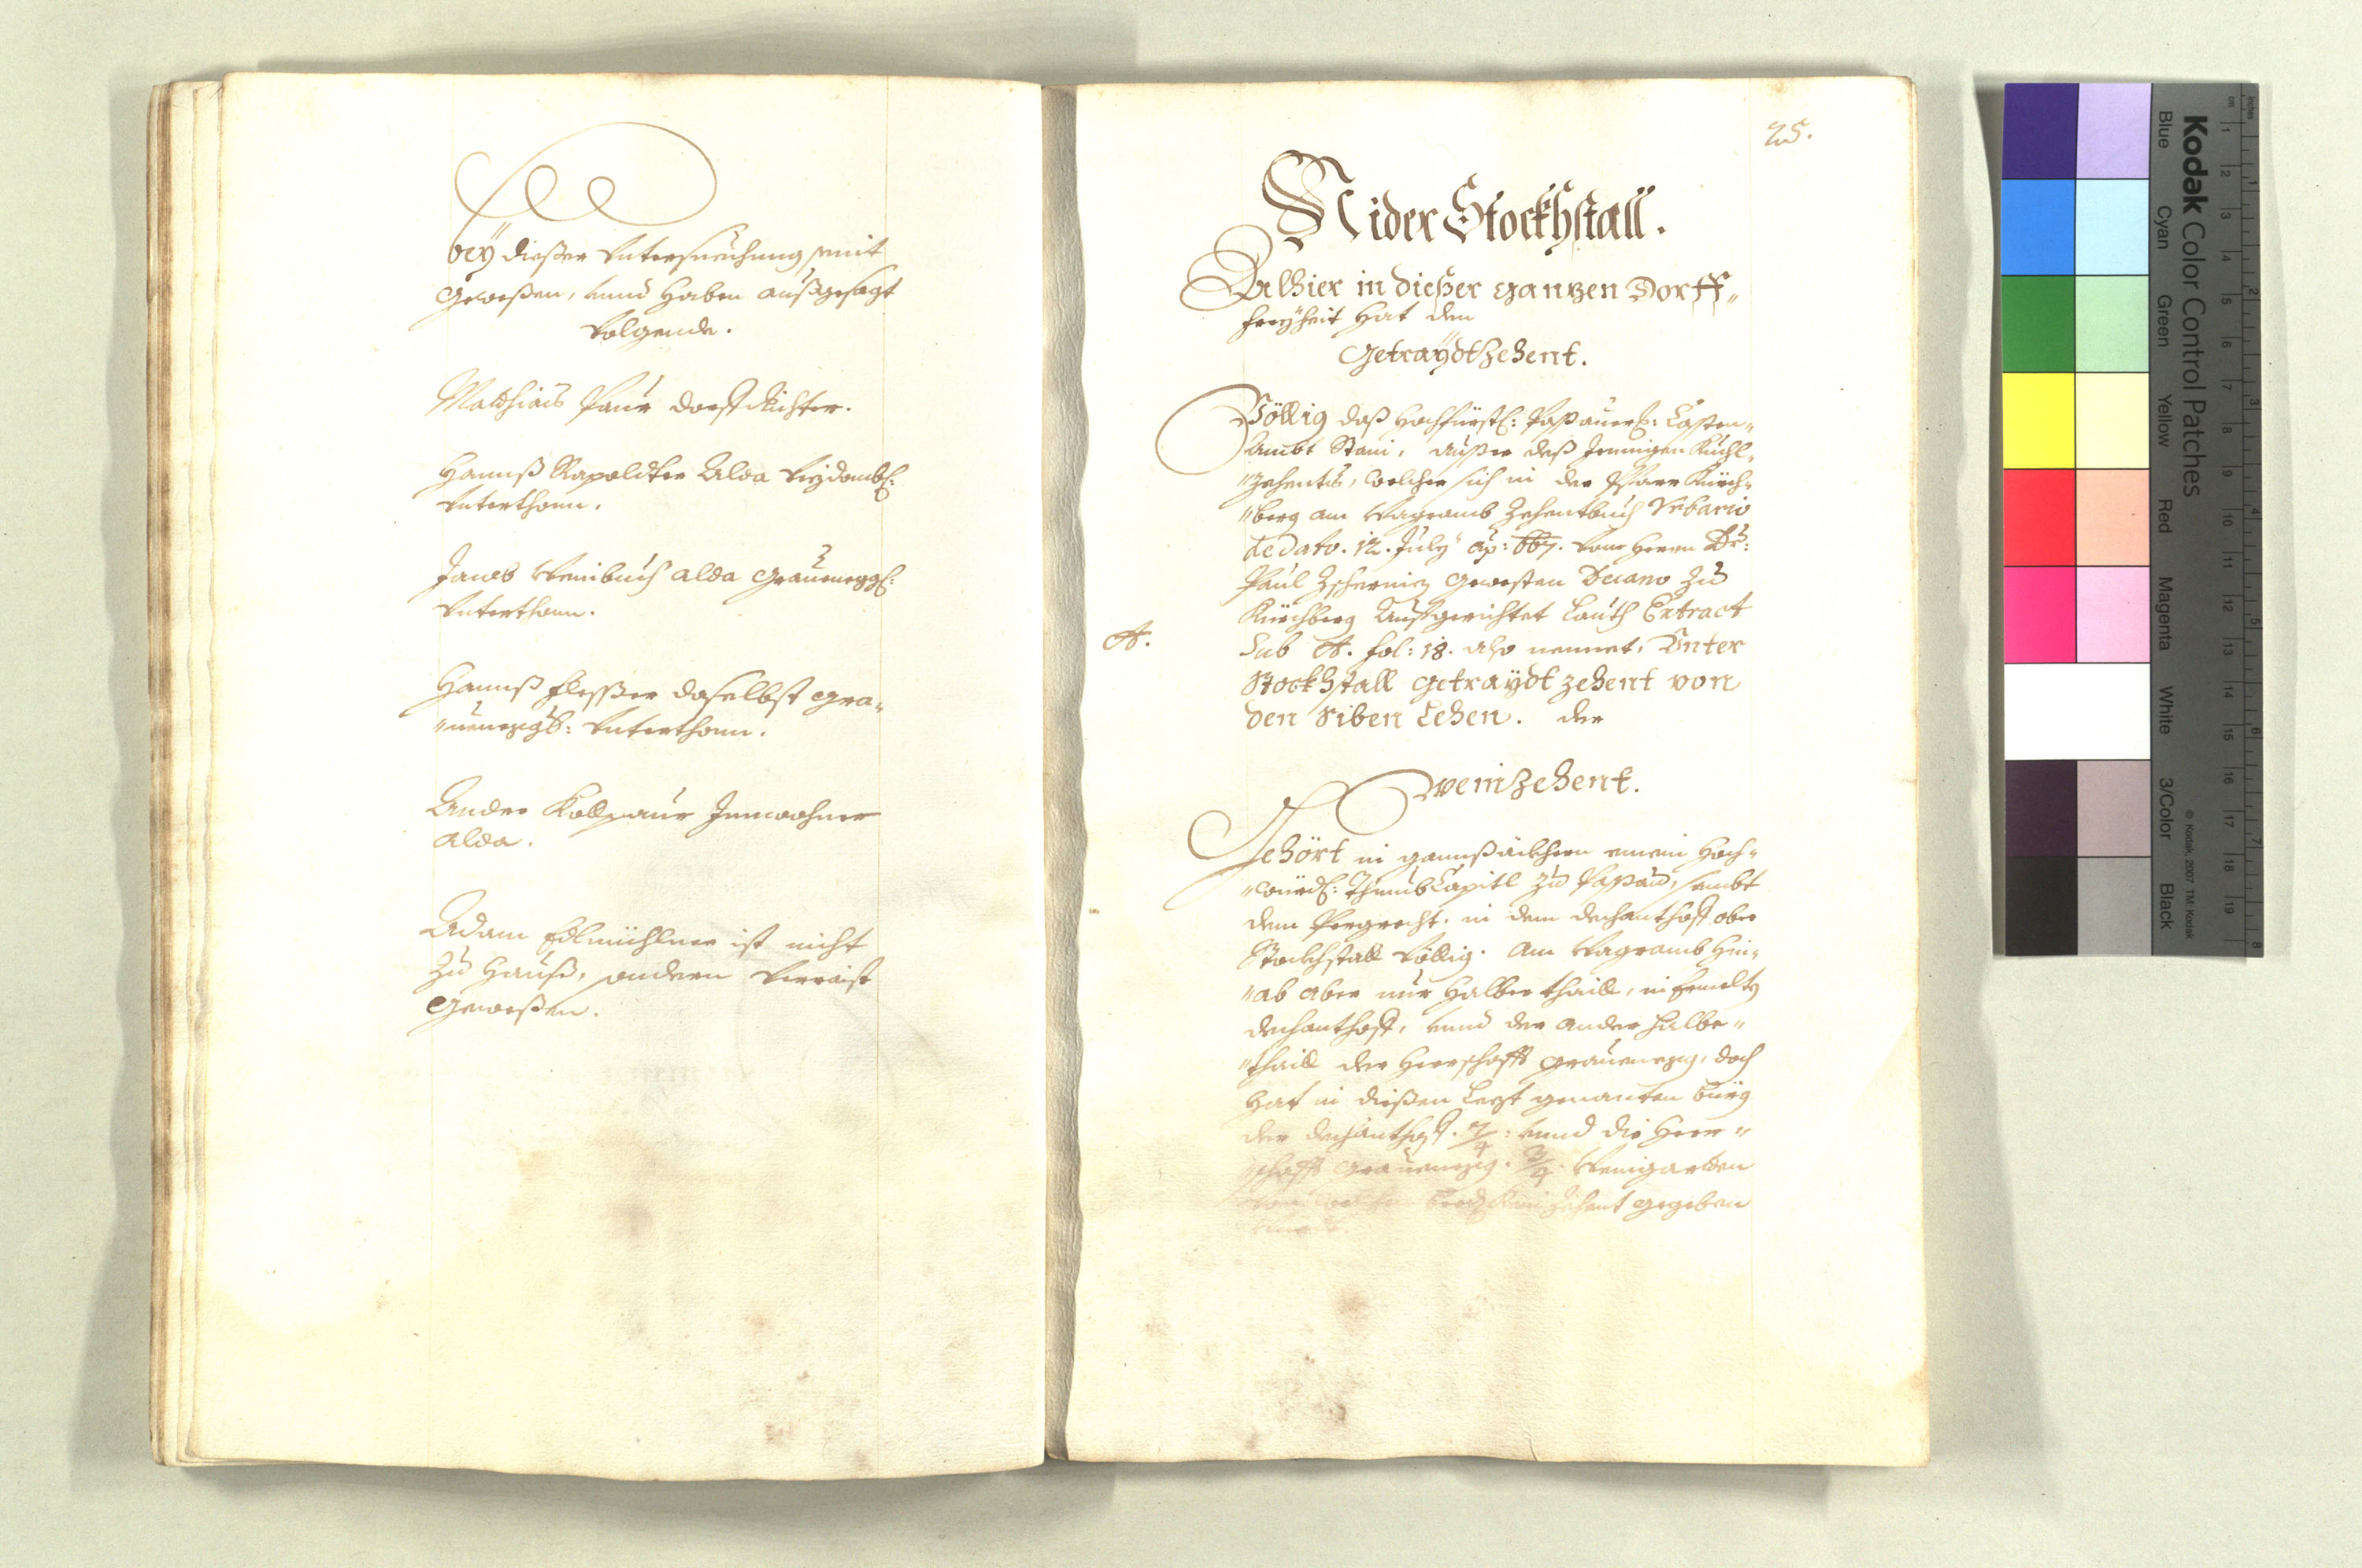 beÿ dießer Untersuechung mit
geweßen, unnd haben außgesagt
volgende.
Matthias Paur dorfRichter.
Hannß Rapoldter Alda
Unterthann.
Jacob Weinbuch alda Grauenegg:
Unterthann.
Hannß daselbst Gra„
„uenegg: Unterthann.
Andre Kollpaur Innwohner
alda.
Adam Edlmühlner ist nicht
zu Hauß, sondern verraist
geweßen.
25.
Nider Stockhstall.
Alhier in dießer ganzen Dorff„
freÿheit hat den
Getraÿdt zehent.
Völlig daß hochfürstl: Paßauer: Casten„
Ambt Stain, außer deß Jenigen Kuchl„
„zehents, welcher sich in der Pfarr Kürch„
„berg am Wagramb Zehentbuch Urbario
de dato. 12. July aõ: 667. vom Herrn Dr:
Paul geweßten Decano zu
Kürchberg Auffgerichtet lauth Extract
A.
Sub A. fol: 18. also nennet, Unter
Stockhstall getraÿdt zehent von
den Siben Lehen. der
Weinzehent.
Gehört in gannß äckhern einem Hoch„
„würd: Thumb Capitl zu Paßau, sambt
dem Pergrecht in dem dechanthoff ober
Stockhstall völlig. Am Wagramb hin„
„ab aber nur halber thaill, in
dechanthoff, unnd der ander halbe„
„thaill der Herrschafft Grauenegg, doch
hat in dießen lezt genanten bürg
der dechanthoff. 7/4: unnd die Herr„
„schafft Grauenegg. 3/4. Weingarten
Kein Zehent gegeben